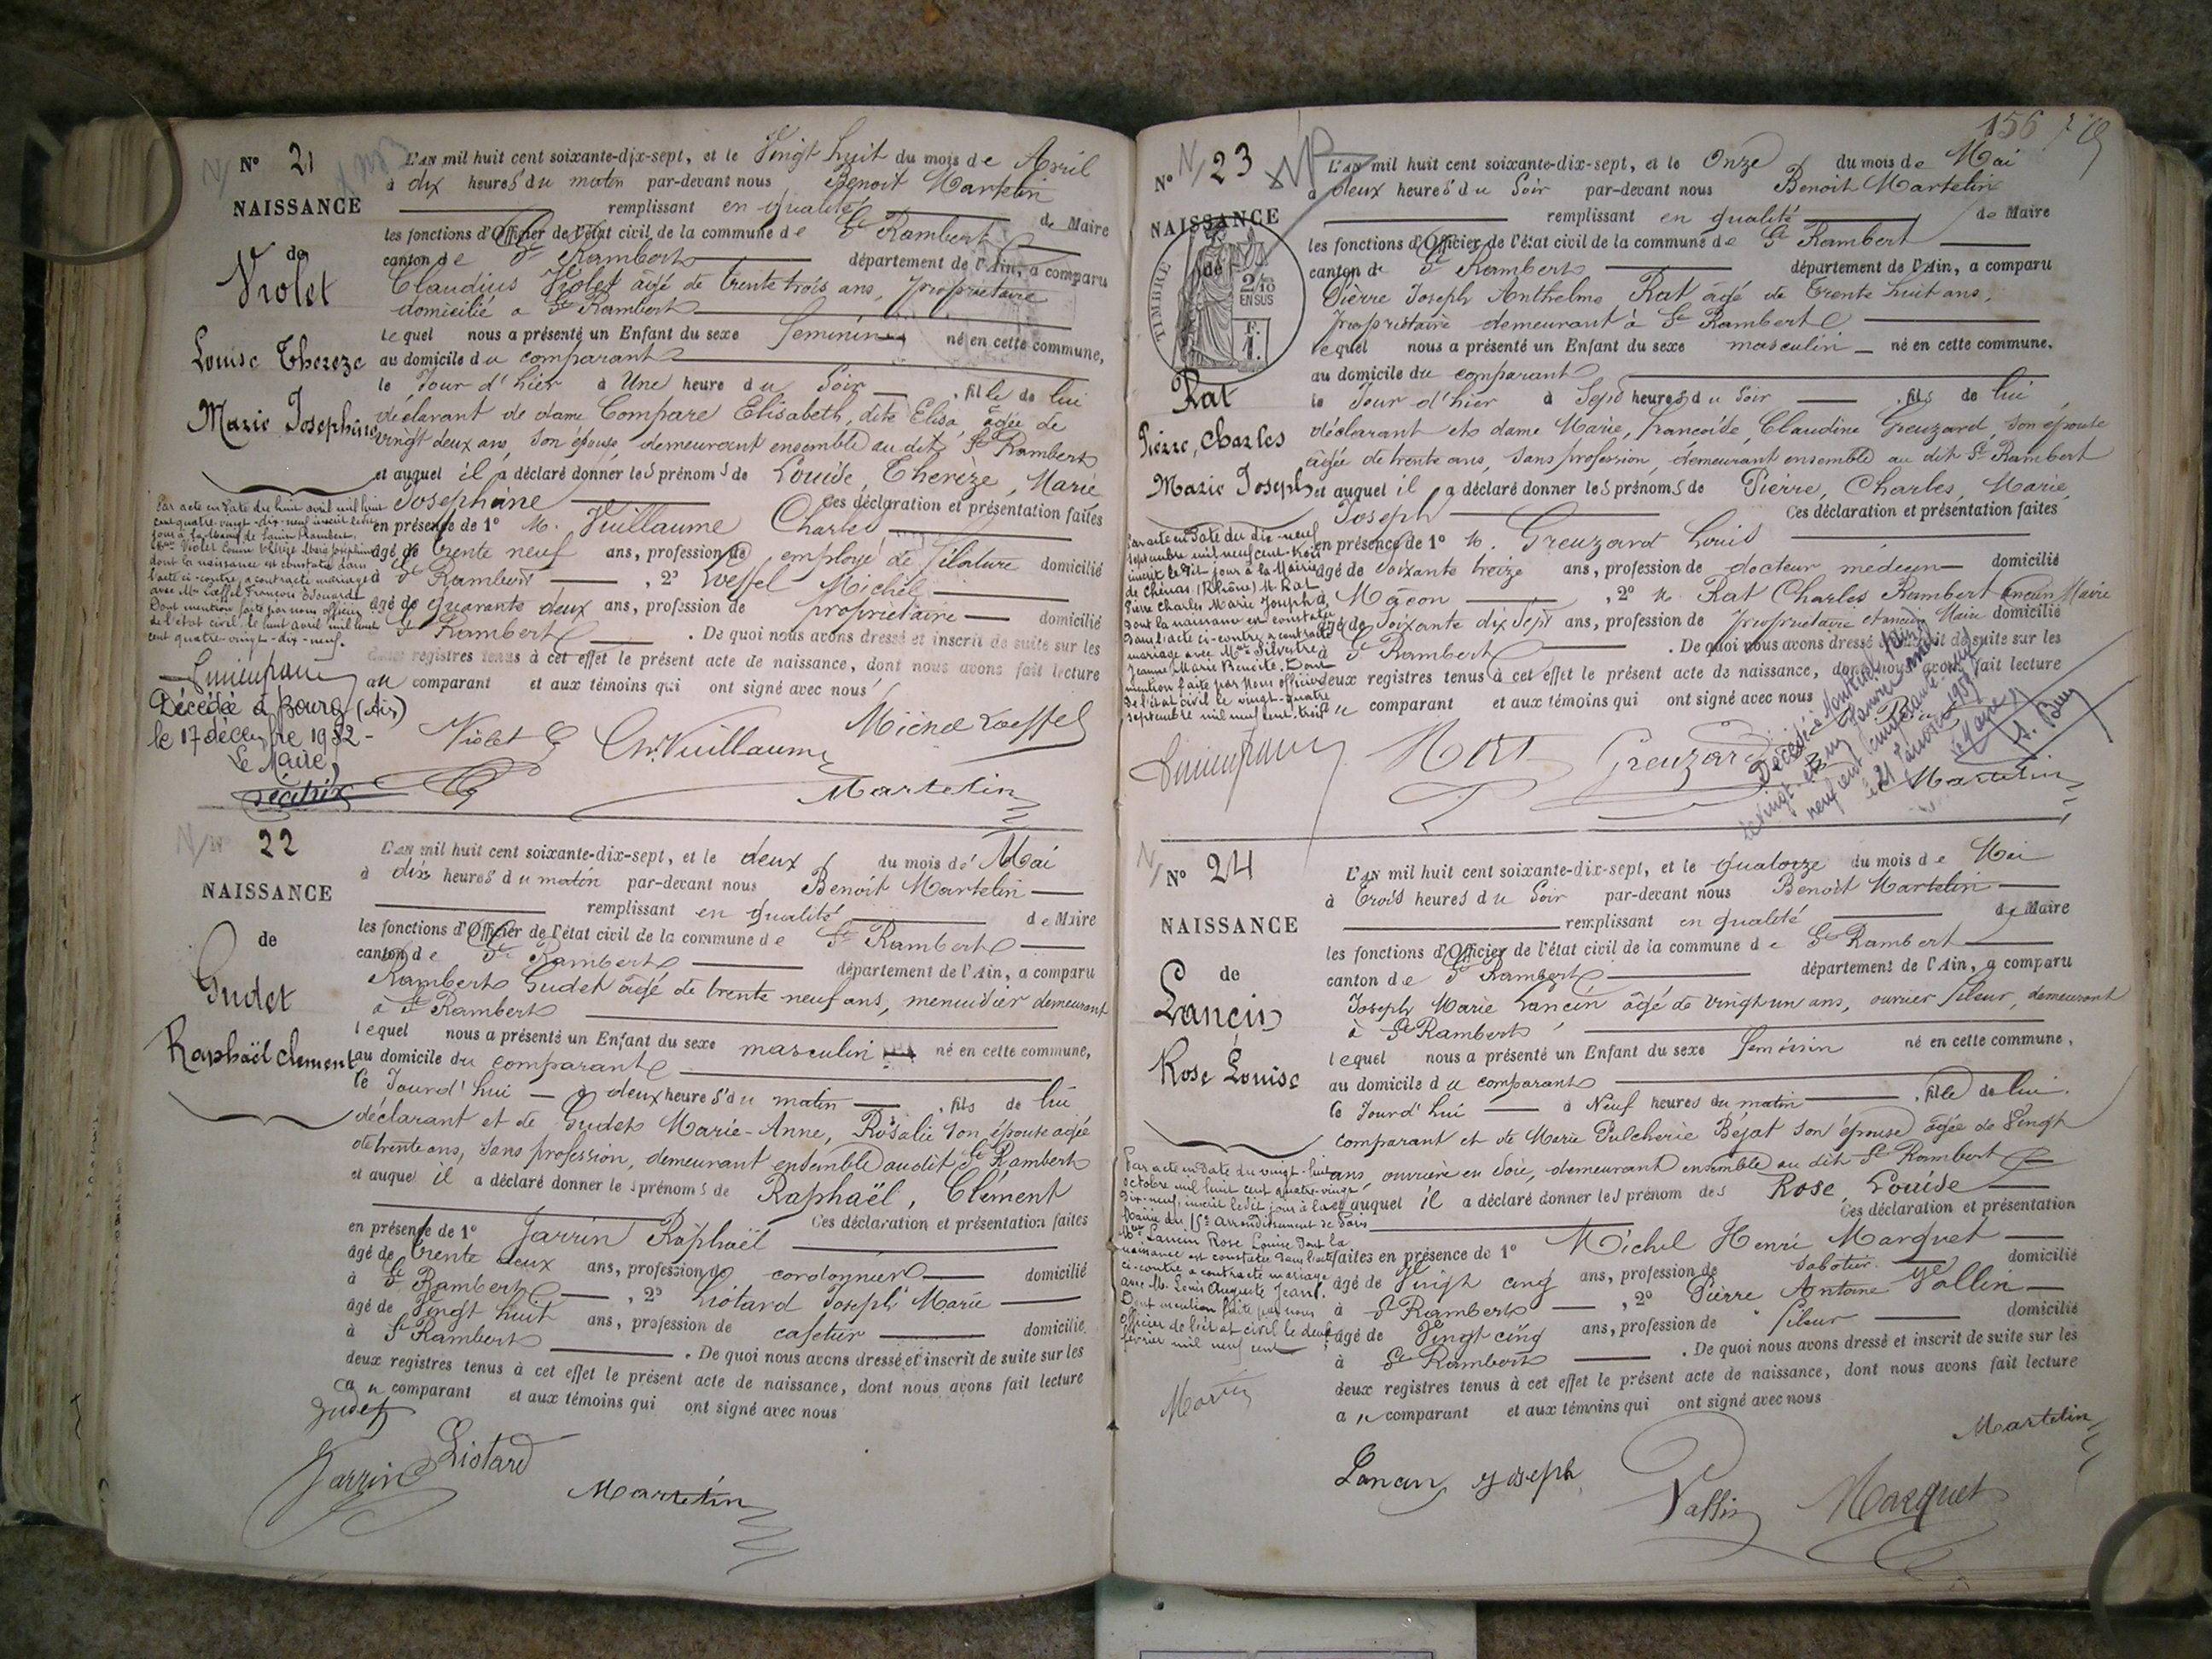 N° 21
NAISSANCE
de
Violet
Louise Thereze
Marie Josephine
L'AN mil huit cent soixante-dix-sept, et le Vingt huit du mois de Avril
à dix heures du matin par-devant nous Benoit Martelin
remplissant en qualité de Maire
les fonctions d'Officier de l'état civil de la commune de St Rambert
canton de St Rambert département de l'Ain, a comparu
Claudius Violet âgé de trente trois ans, propriétaire
domicilié a St Rambert
lequel nous a présenté un Enfant du sexe feminin né en cette commune,
au domicile du comparant
le Jour d'hier à Une heure du Soir , fille de lui
déclarant de dame Compare Elisabeth, dite Elisa, âgée de
vingt deux ans, son épouse, demeurant ensemble au dit St Rambert
et auquel il a déclaré donner les prénoms de Louise, Thereze, Marie
Josephine Ces déclaration et présentation faites
en présence de 1° M. Vuillaume Charles
âgé de trente neuf ans, profession de employé de filature domicilié
à St Rambert , 2° Loeffel Michel
âgé de quarante deux ans, profession de propriétaire domicilié
St Rambert . De quoi nous avons dressé et inscrit de suite sur les
deux registres tenus à cet effet le présent acte de naissance, dont nous avons fait lecture
au comparant et aux témoins qui ont signé avec nous
Par acte en date du huit avril mil huit
cent quatre-vingt-dix-neuf inscrit ledit
jour à la Mairie de Saint Rambert,
Violet Louise Thérèze Marie Josephine
dont la naissance est constatée dans
l'acte ci-contre, a contracté mariage
avec Mr Loeffel François Edouard
Dont mention faite par nous officier
de l'état civil, le huit avril mil huit
cent quatre-vingt-dix-neuf.
Décédée à Bourg (Ain)
le 17 décembre 1952
Le Maire,
Violet Ch. Vuillaume Michel Loeffel
Martelin
N° 22
NAISSANCE
de
Gudet
Raphaël Clement
L'AN mil huit cent soixante-dix-sept, et le deux du mois de Mai
à dix heures du matin par-devant nous Benoit Martelin
remplissant en qualité de Maire
les fonctions d'Officier de l'état civil de la commune de St Rambert
canton de St Rambert département de l'Ain, a comparu
Rambert Gudet âgé de trente neuf ans, menuisier demeurant
à St Rambert
lequel nous a présenté un Enfant du sexe masculin né en cette commune,
au domicile du comparant
le Jourd'hui à deux heures du matin , fils de lui
déclarant et de Gudet Marie-Anne, Rosalie son épouse agée
de trente ans, sans profession, demeurant ensemble audit St Rambert
et auquel il a déclaré donner les prénoms de Raphaël, Clément
Ces déclaration et présentation faites
en présence de 1° Jarrin Raphaël
âgé de trente deux ans, profession de cordonnier domicilié
à St Rambert , 2° Liotard Joseph Marie
âgé de Vingt huit ans, profession de cafetier domicilié
à St Rambert . De quoi nous avons dressé et inscrit de suite sur les
deux registres tenus à cet effet le présent acte de naissance, dont nous avons fait lecture
au comparant et aux témoins qui ont signé avec nous
Gudet
Jarrin Liotard Martelin
156
N° 23
NAISSANCE
de
TIMBRE
2/10
EN SUS
F.
1.
Rat
Pierre, Charles
Marie Joseph
L'AN mil huit cent soixante-dix-sept, et le Onze du mois de Mai
à deux heures du Soir par-devant nous Benoit Martelin
remplissant en qualité de Maire
les fonctions d'Officier de l'état civil de la commune de St Rambert
canton de St Rambert département de l'Ain, a comparu
Pierre Joseph Anthelme Rat âgé de trente huit ans,
propriétaire demeurant à St Rambert
lequel nous a présenté un Enfant du sexe masculin né en cette commune.
au domicile du comparant
le Jour d'hier à Sept heures du Soir , fils de lui
déclarant et dame Marie, Françoise, Claudine Greuzard, son épouse
âgée de trente ans, sans profession, demeurant ensemble au dit St Rambert
et auquel il a déclaré donner les prénoms de Pierre, Charles, Marie,
Joseph Ces déclaration et présentation faites
en présence de 1° M. Greuzard Louis
âgé de soixante treize ans, profession de docteur médecin domicilié
à Mâcon , 2° M. Rat Charles Rambert ancien Maire
âgé de Soixante dix Sept ans, profession de Propriétaire et ancien Maire domicilié
à St Rambert . De quoi nous avons dressé et inscrit de suite sur les
deux registres tenus à cet effet le présent acte de naissance, dont nous avons fait lecture
au comparant et aux témoins qui ont signé avec nous
Par acte en date du dix-neuf
septembre mil neuf cent-trois
inscrit le dit jour à la Mairie
de Chénas (Rhône) M. Rat
Pierre Charles Marie Joseph
dont la naissance est constatée
dans l'acte ci-contre, a contracté
mariage avec Melle Silvestre
Jeanne Marie Benoite. Dont
mention faite par nous officier
de l'état civil le vingt-quatre
septembre mil neuf cent-trois
Rat Greuzard
Martelin
Décédé à
le vingt-et-un Janvier mil
neuf cent cinquante-neuf
le 21 Janvier 1959
Le Maire
N° 24
NAISSANCE
de
Lancin
Rose Louise
L'AN mil huit cent soixante-dix-sept, et le quatorze du mois de Mai
à trois heures du Soir par-devant nous Benoit Martelin
remplissant en qualité de Maire
les fonctions d'Officier de l'état civil de la commune de St Rambert
canton de St Rambert département de l'Ain, a comparu
Joseph Marie Lancin âgé de vingt un ans, ouvrier fileur, demeurant
à St Rambert
lequel nous a présenté un Enfant du sexe feminin né en cette commune,
au domicile du comparant
le Jourd'hui à Neuf heures du matin , fille de lui
comparant et de Marie Pulcherie Béjat son épouse âgée de Vingt
ans, ouvrière en soie, demeurant ensemble au dit St Rambert
et auquel il a déclaré donner les prénom des Rose, Louise
Ces déclaration et présentation
faites en présence de 1° Michel Henri Marquet
âgé de Vingt cinq ans, profession de sabotier domicilié
à St Rambert , 2° Pierre Antoine Vallin
âgé de Vingt cinq ans, profession de fileur domicilié
à St Rambert . De quoi nous avons dressé et inscrit de suite sur les
deux registres tenus à cet effet le présent acte de naissance, dont nous avons fait lecture
au comparant et aux témoins qui ont signé avec nous
Par acte en date du vingt-huit
octobre mil huit cent quatre-vingt
dix-neuf, inscrit ledit jour à la
Mairie du 15e arrondissement de Paris
Lancin Rose Louise dont la
naissance est constatée dans l'acte
ci-contre a contracté mariage
avec M. Louis Auguste Jean.
Dont mention faite par nous
officier de l'état civil le deux
février mil neuf cent
Martelin
Lancin Joseph Vallin Marquet